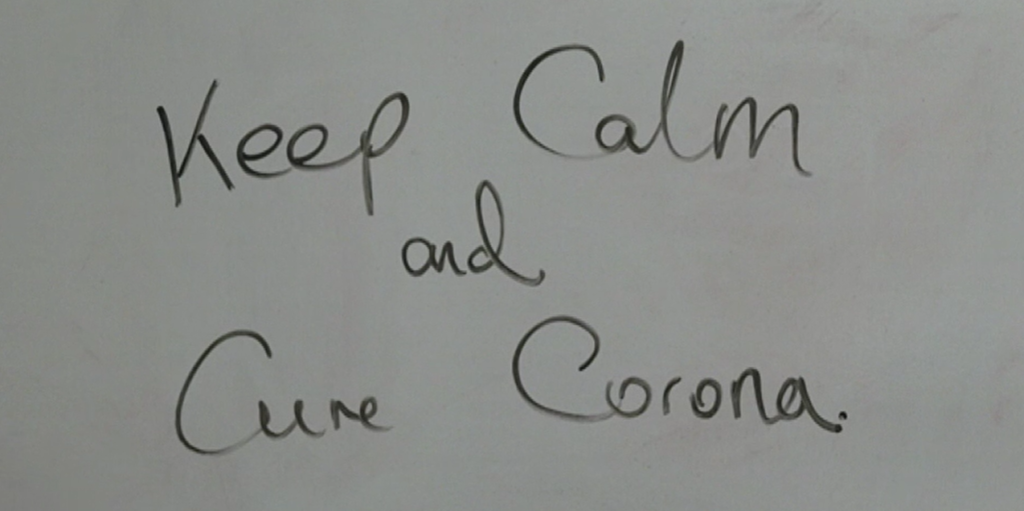 Keep Calm
and
Cure Corona.